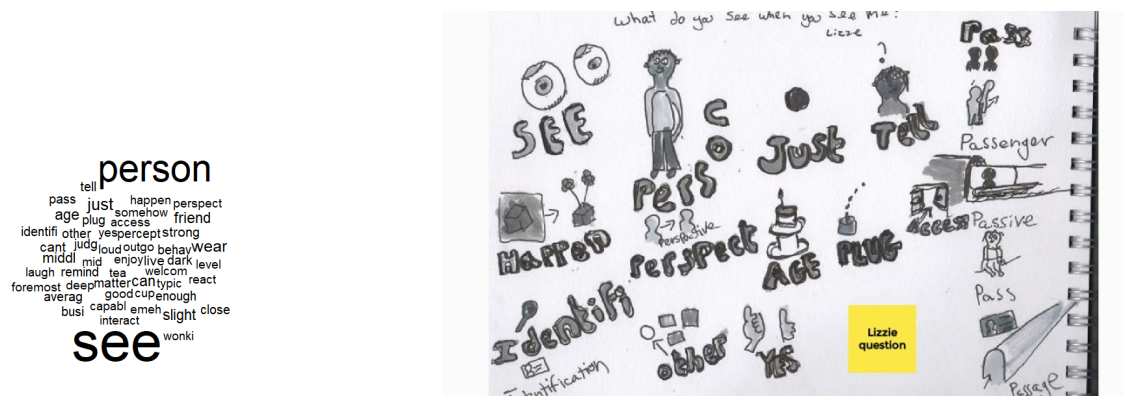 person
tell
pass just happen perspect
age plug somehow friend
access
identifi other yes percept strong
cant judg loud outgo behav wear
middl mid enjoy live dark level
laugh remind tea welcom
foremost deep matter can typic react
averag good cup enough
busi capabl emeh slight close
interact
see wonki
What do you see when you see me?
Lizzie
SEE
PERS
CO
Just
Tell
Pass
Passenger
HAPPEN
Perspective
PERSPECT
AGE
PLUG
ACCESS
Passive
Pass
Identifi
Identification
other
YES
Lizzie
question
Passage